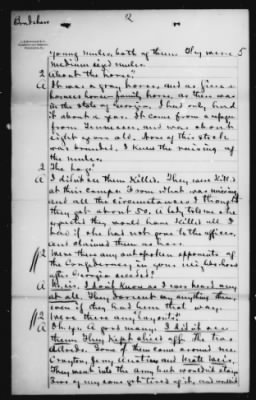 Bradshaw
2
5
young mules, both of them. They were
medium sized mules.
2 What the horse?
A It was a gray horse, and as fine a
horse family horse, as there was
in the State of Georgia. I had only had
it about a year. It came from a refugee
from Tennessee, and was about
eight years old. None of this stock
was branded. I knew the raising of
the mules.
2 The hogs?
A I didn't see them killed. They were killed
at their camps. From what was missing
and all the circumstances I thought
they got about 50. A lady told me she
expected they would have killed all I
had if she had not gone to the officer,
and claimed them as hers.
2 Were there any outspoken opponents of
the Confederacy, in your neighborhood
after Georgia seceded?
A No sir. I don't know as I ever heard any
at all. They dare not say anything then,
even if they had been that way.
2 Were there any "layouts"?
A Oh yes. A good many. I did it see
them. They kept shied off the
roads. Some of them came around me.
They went into the army but wouldn't stay.